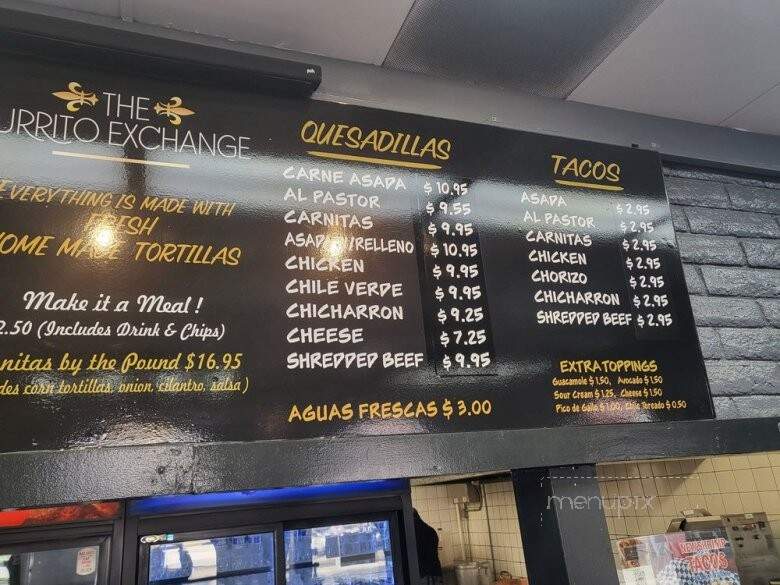 THE
URRITO EXCHANGE
EVERYTHING IS MADE WITH
FRESH
OME MADE TORTILLAS
Make it a Meal!
2.50 (Includes Drink & Chips)
nitas by the Pound $16.95
des corn tortillas, onion, cilantro, salsa)
QUESADILLAS
CARNE ASADA $ 10.95
AL PASTOR $ 9.55
CARNITAS $ 9.95
ASADA W/RELLENO $ 10.95
CHICKEN $ 9.95
CHILE VERDE $ 9.95
CHICHARRON $ 9.25
CHEESE $ 7.25
SHREDDED BEEF $ 9.95
AGUAS FRESCAS $ 3.00
TACOS
ASADA $ 2.95
AL PASTOR $ 2.95
CARNITAS $ 2.95
CHICKEN $ 2.95
CHORIZO $ 2.95
CHICHARRON $ 2.95
SHREDDED BEEF $ 2.95
EXTRA TOPPINGS
Guacamole $ 1.50, Avocado $ 1.50
Sour Cream $ 1.25, Cheese $ 1.50
Pico de Gallo $ 1.00, Chile Toreado $ 0.50
menupix
TACOS